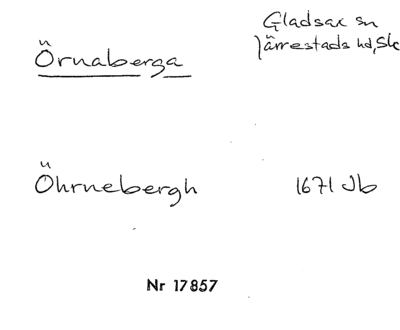 Örnaberga
Gladsax sn
Järrestads hd, Sk
Öhrnebergh
1671 Jb
Nr 17857